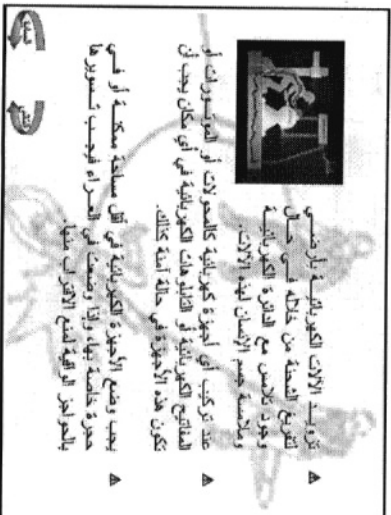 تزويد الآلات الكهربائية بأرضي
لتفريغ الشحنة من خلاله في حال
وجود تلامس مع الدائرة الكهربائية
وملامسة جسم الإنسان لهذه الآلات.
عند تركيب أي أجهزة كهربائية كالمحولات أو الموتورات أو
المفاتيح الكهربائية أو التابلوهات الكهربائية في أي مكان يجب أن
تكون هذه الأجهزة في حالة آمنة كذلك.
يجب وضع الأجهزة الكهربائية في أقل مساحة ممكنة أو في
حجرة خاصة بها، وإذا وضعت في العراء فيجب تسويرها
بالحواجز الواقية لمنع الاقتراب منها.